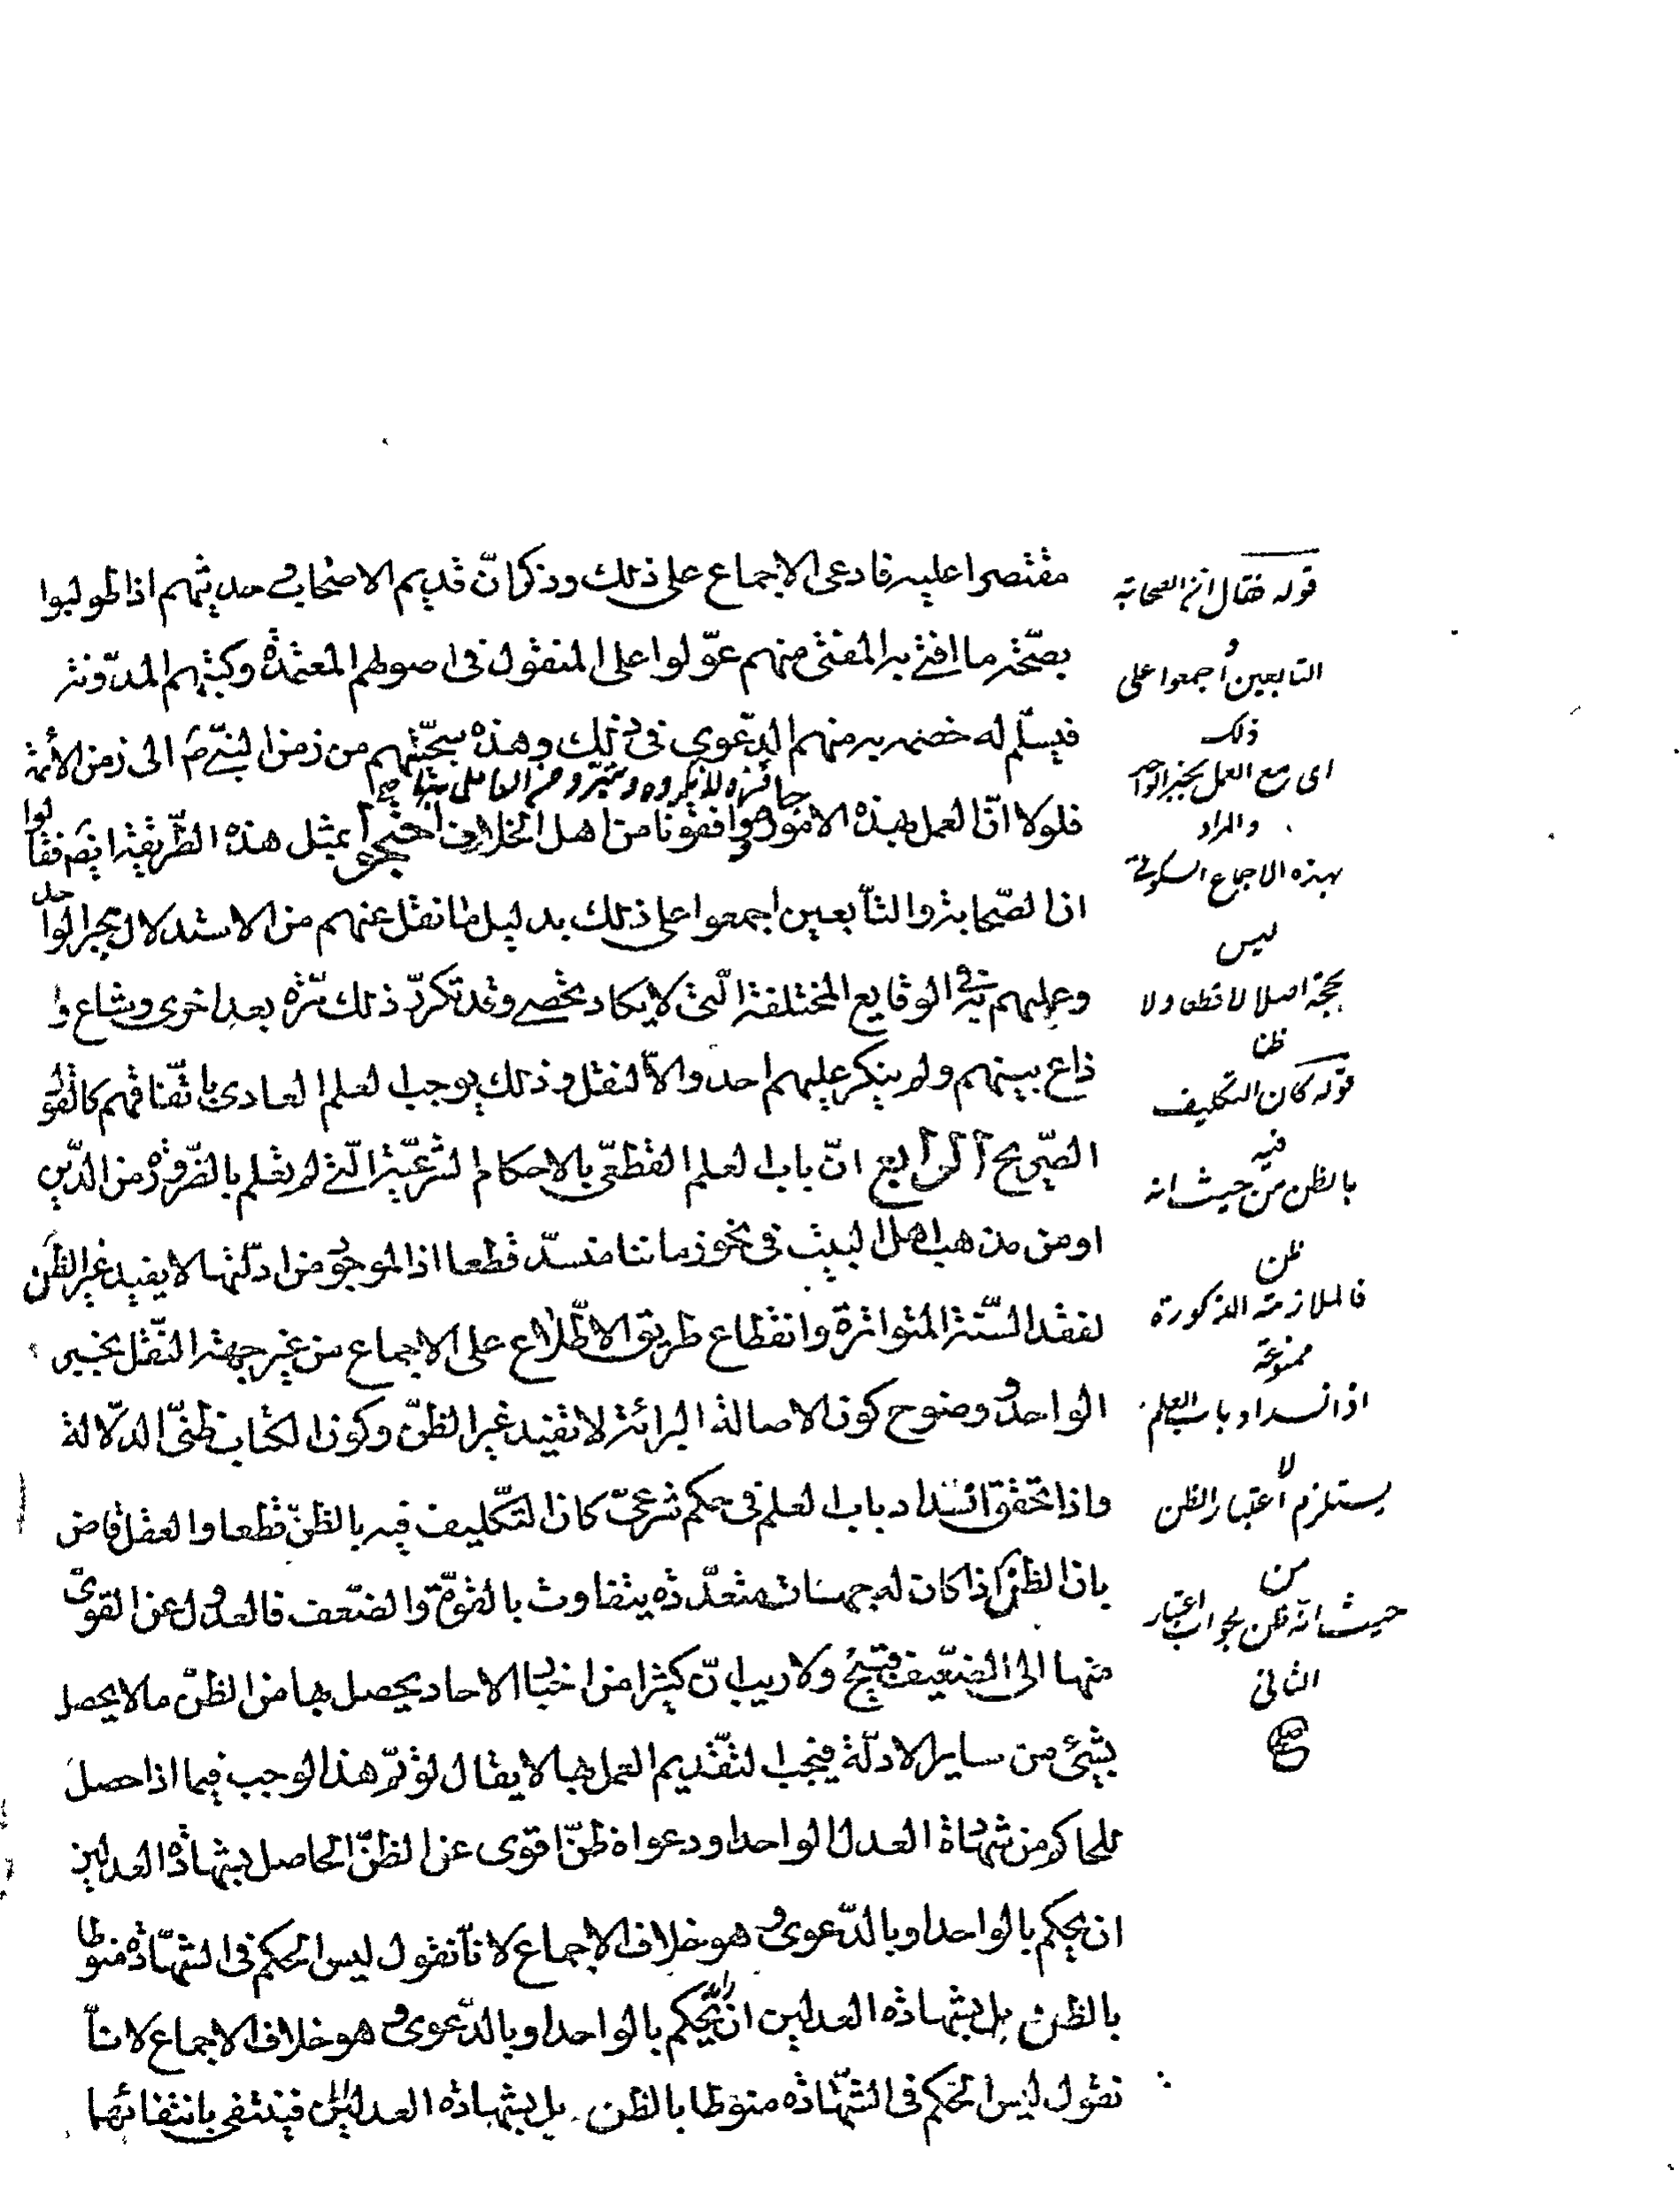 مقتصرا عليه فادعى الاجماع على ذلك وذكر ان قديم الاصحاب وحديثهم اذا طولبوا
بصحّة ما افتى به المفتى منهم عوّلوا على المنقول فى اصولهم المعتمدة وكتبهم المدوّنة
فيسلّم له خصمه منهم الدّعوى فى ذلك وهذه سجيّتهم من زمن النبىّ ص الى زمن الأئمة
فلولا انّ العمل بهذه الاخبار جائز لانكروه وتبرّوا من العامل بها
وموافقونا من اهل الخلاف احتجوا بمثل هذه الطّريقة ايضا فقالوا
ان الصّحابة والتّابعين اجمعوا على ذلك بدليل ما نقل عنهم من الاستدلال بخبر الواحد
وعملهم به فى الوقايع المختلفة الّتى لا يكاد تحصى وقد تكرّر ذلك مرّة بعد اخرى وشاع و
ذاع بينهم ولم ينكر عليهم احد والّا لنقل وذلك يوجب العلم العادى باتّفاقهم كالقول
الصّريح الرابع انّ باب العلم القطعىّ بالاحكام الشرعيّة الّتى لم تعلم بالضّرورة من الدّين
او من مذهب اهل البيت فى نحو زماننا منسدّ قطعا اذ الموجود من ادلّتها لا يفيد غير الظّن
لفقد السّنة المتواترة وانقطاع طريق الاطّلاع على الاجماع من غير جهة النّقل بخبر
الواحد ووضوح كون الاصالة البرائة لا تفيد غير الظنّ وكون الكتاب ظنّى الدّلالة
واذا تحقّق انسداد باب العلم فى حكم شرعىّ كان التكليف فيه بالظنّ قطعا والعقل قاض
بان الظنّ اذا كان له جهات متعدّدة يتفاوت بالقوّة والضّعف فالعدول عن القوىّ
منها الى الضعيف قبيح ولا ريب انّ كثيرا من اخبار الاحاد يحصل بها من الظنّ ما لا يحصل
بشىء من ساير الادلّة فيجب التّقديم العمل بها لا يقال لو تمّ هذا لوجب فيما اذا حصل
للحاكم من شهادة العدل الواحد او دعواه ظنّ اقوى عن الظنّ الحاصل بشهادة العدلين
ان يحكم بالواحد او بالدّعوى وهو خلاف الاجماع لانّا نقول ليس الحكم فى الشهّادة منوطا
بالظن بل بشهادة العدلين ان يحكم بالواحد او بالدّعوى وهو خلاف الاجماع لانّا
نقول ليس الحكم فى الشهّادة منوطا بالظن بل بشهادة العدلين فينتفى بانتفائهما
قوله فقال ان الصحابة
و
التابعين اجمعوا على
ذلك
اى مع العمل بخبر الواحد
والمراد
بهذه الاجماع السكوتى
ليس
بحجة اصلا لا قطعا ولا
ظنا
قوله كان التكليف
فيه
بالظن من حيث انه
ظن
فالملازمة المذكورة
ممنوعة
اذ انسداد باب العلم
لا
يستلزم اعتبار الظن
من
حيث انه ظن لجواز اعتبار
الثانى